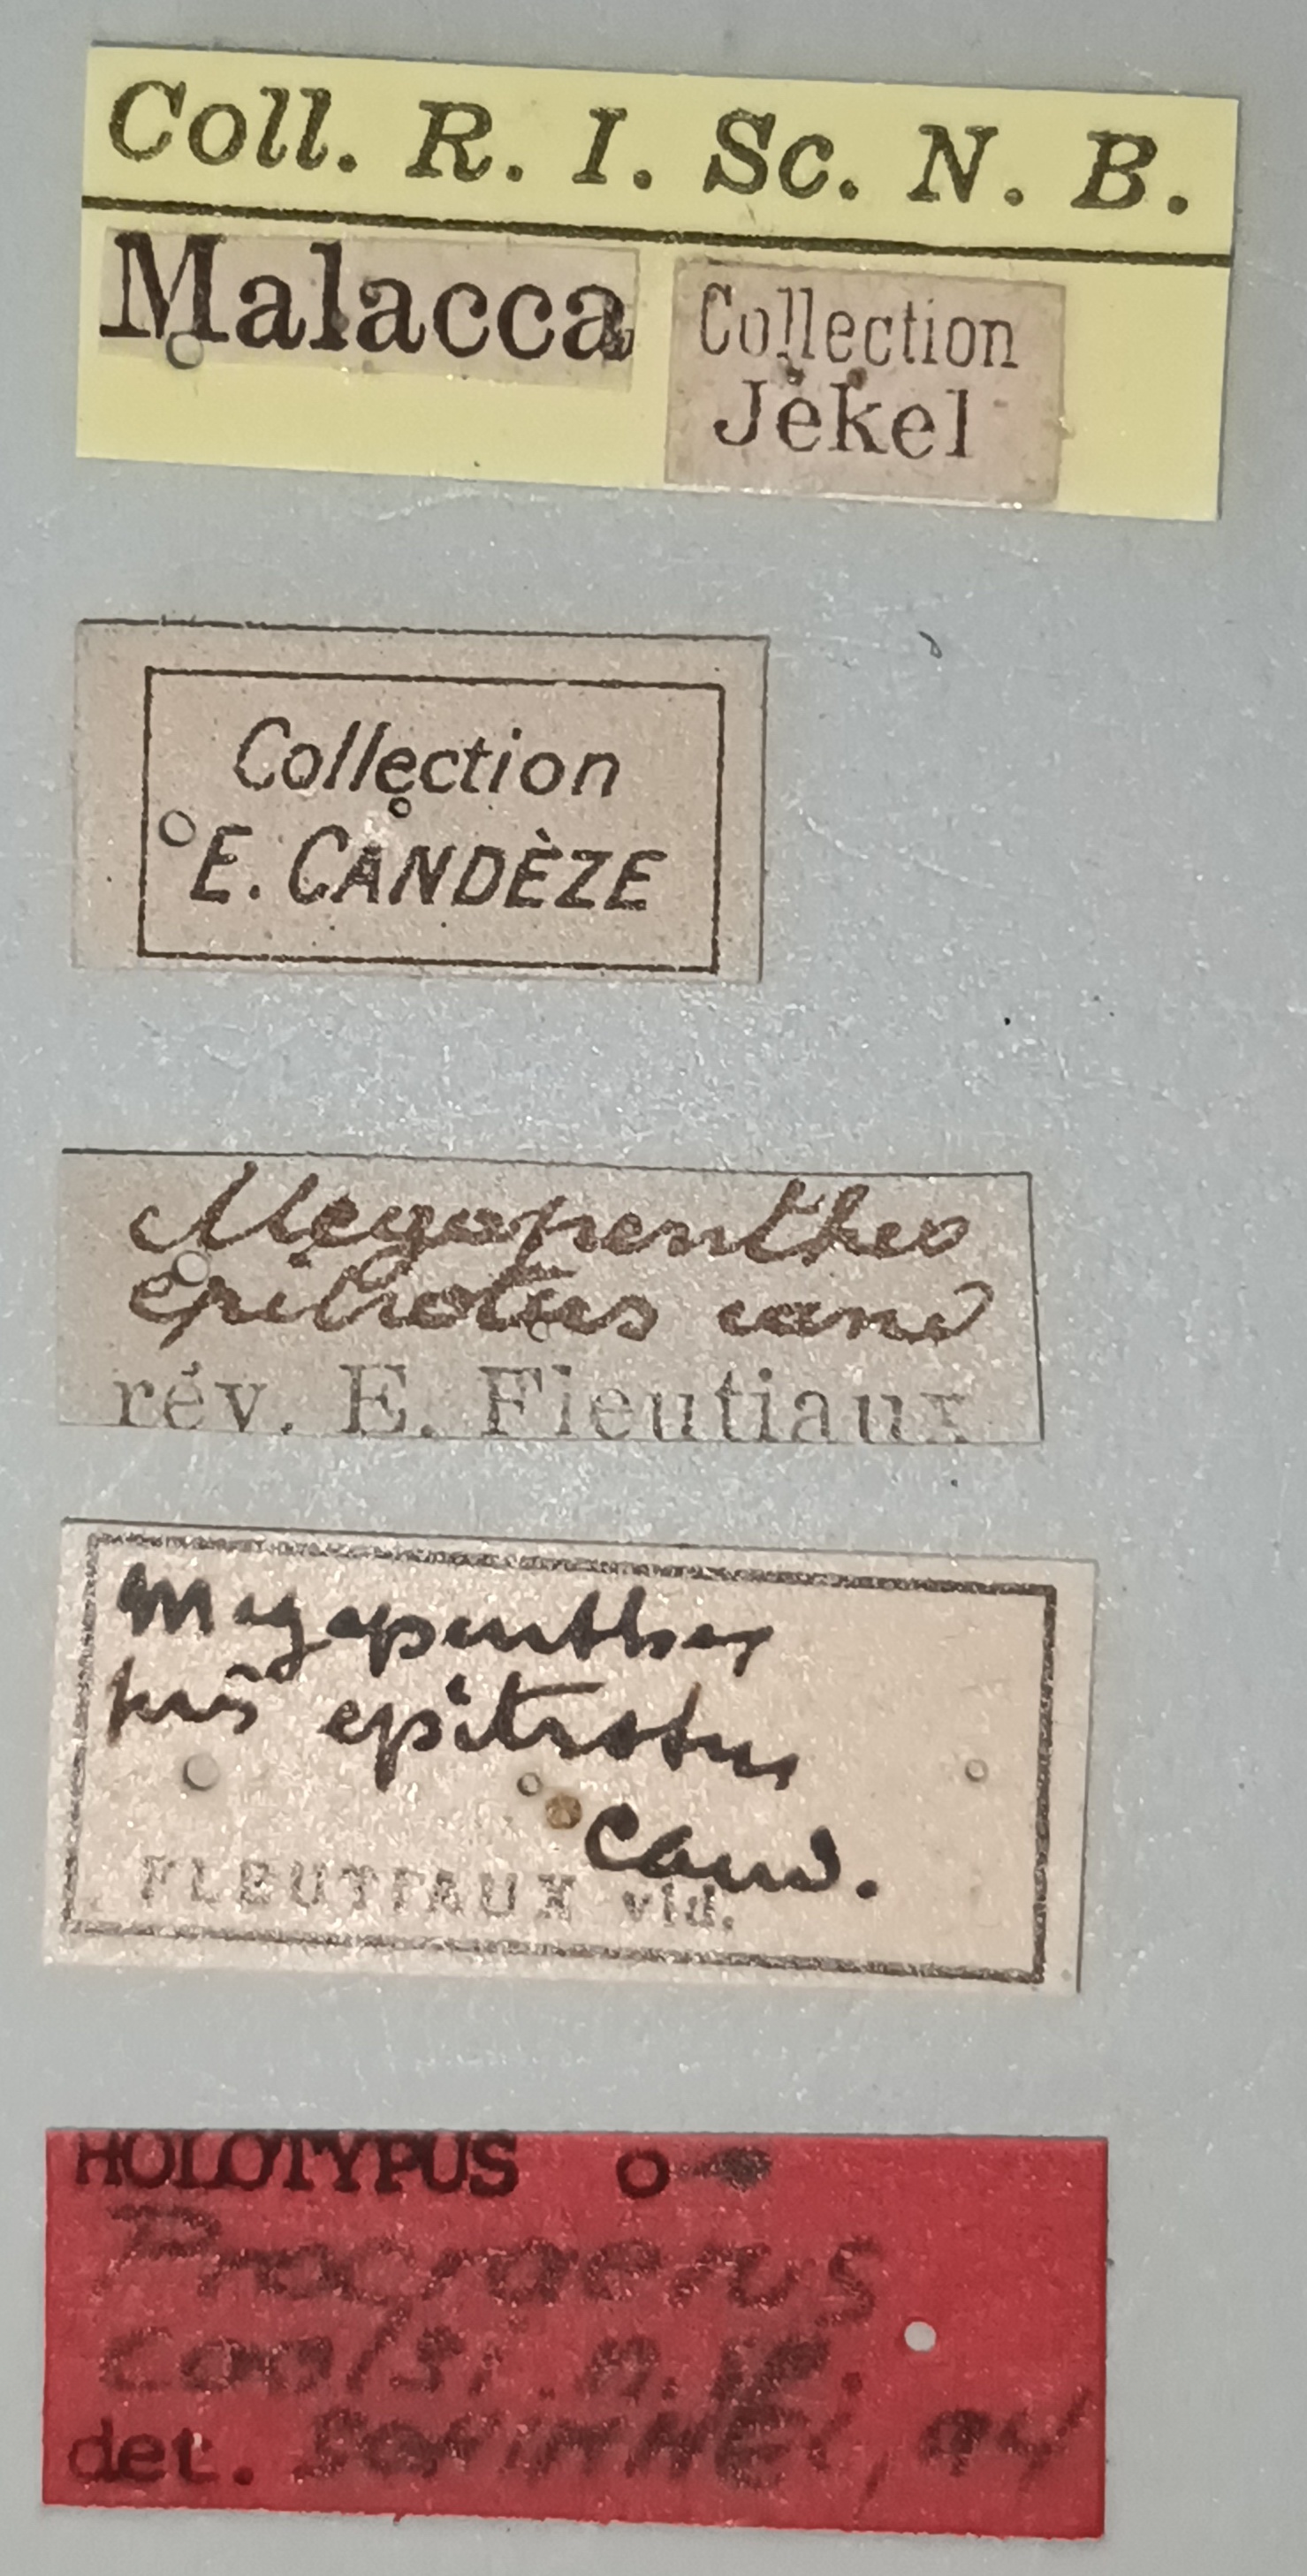 Coll. R. I. Sc. N. B.
Malacca
Collection
Jekel
Collection
E. CANDÈZE
Megapenthes
epitrotus cand
rév. E. Fleutiaux
Megapenthes
epitrotus
Cand.
FLEUTIAUX vid.
HOLOTYPUS
Procraerus
coolsi n. sp.
det. SCHIMMEL, 94